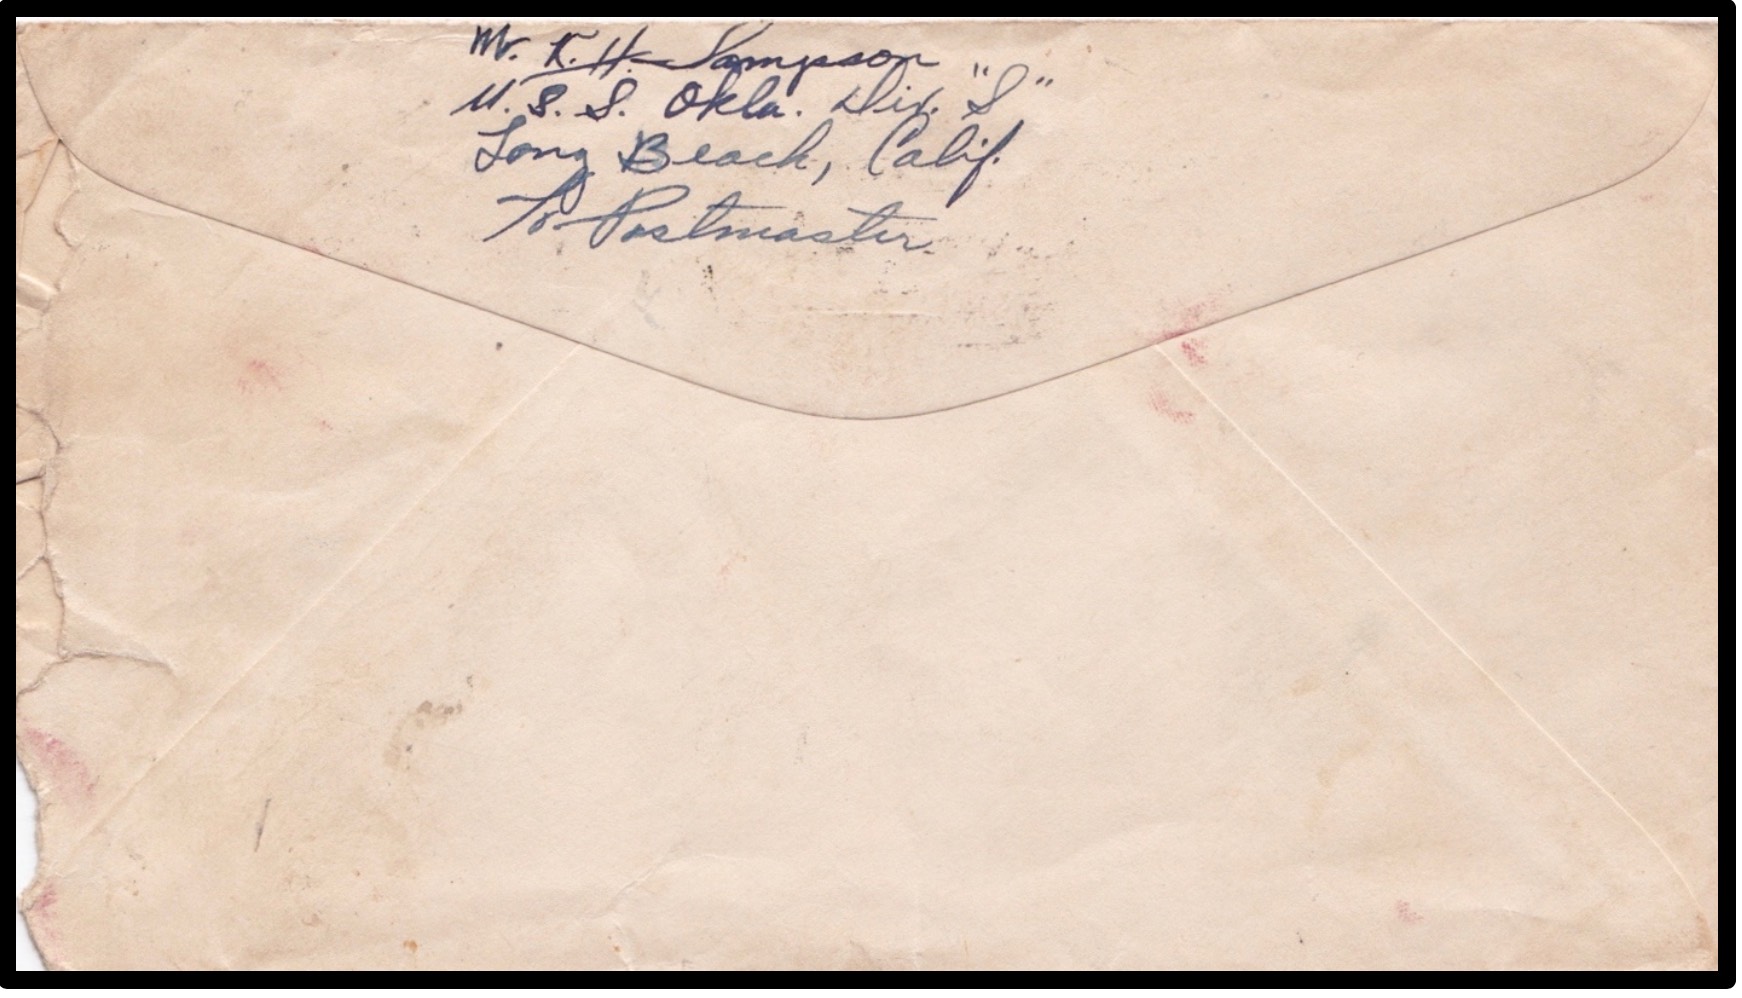 Mr. K. H. Sampson
U. S. S. Okla. Div. "S"
Long Beach, Calif.
To Postmaster.